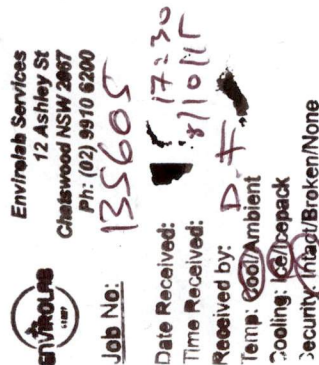 ENVIROLAB
Envirolab Services
12 Ashley St
Chatswood NSW 2067
Ph: (02) 9910 6200
Job No: 135605
Date Received:
17:30
Time Received: 8/10/15
Received by: DF
Temp: Cool/Ambient
Cooling: Ice/Icepack
Security: Intact/Broken/None